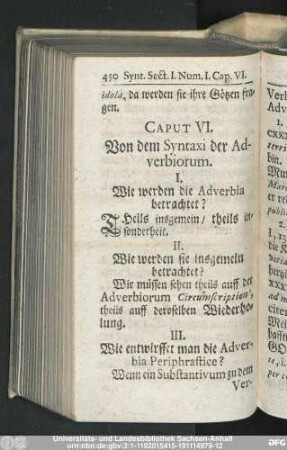 450 Synt. Sect. I. Num. I. Cap. VI.
idola, da werden sie ihre Götzen fra-
gen.
CAPUT VI.
Von dem Syntaxi der Ad-
verbiorum.
I.
Wie werden die Adverbia
betrachtet?
Theils insgemein/ theils in-
sonderheit.
II.
Wie werden sie insgemein
betrachtet?
Wir müssen sehen theils auff der
Adverbiorum Circumscription,
theils auff deroselben Wiederho-
lung.
III.
Wie entwirfft man die Adver-
bia Periphrastice?
Wenn ein Substantivum zu dem
Ver-
Universitäts- und Landesbibliothek Sachsen-Anhalt
urn:nbn:de:gbv:3:1-1192015415-191114979-12
DFG